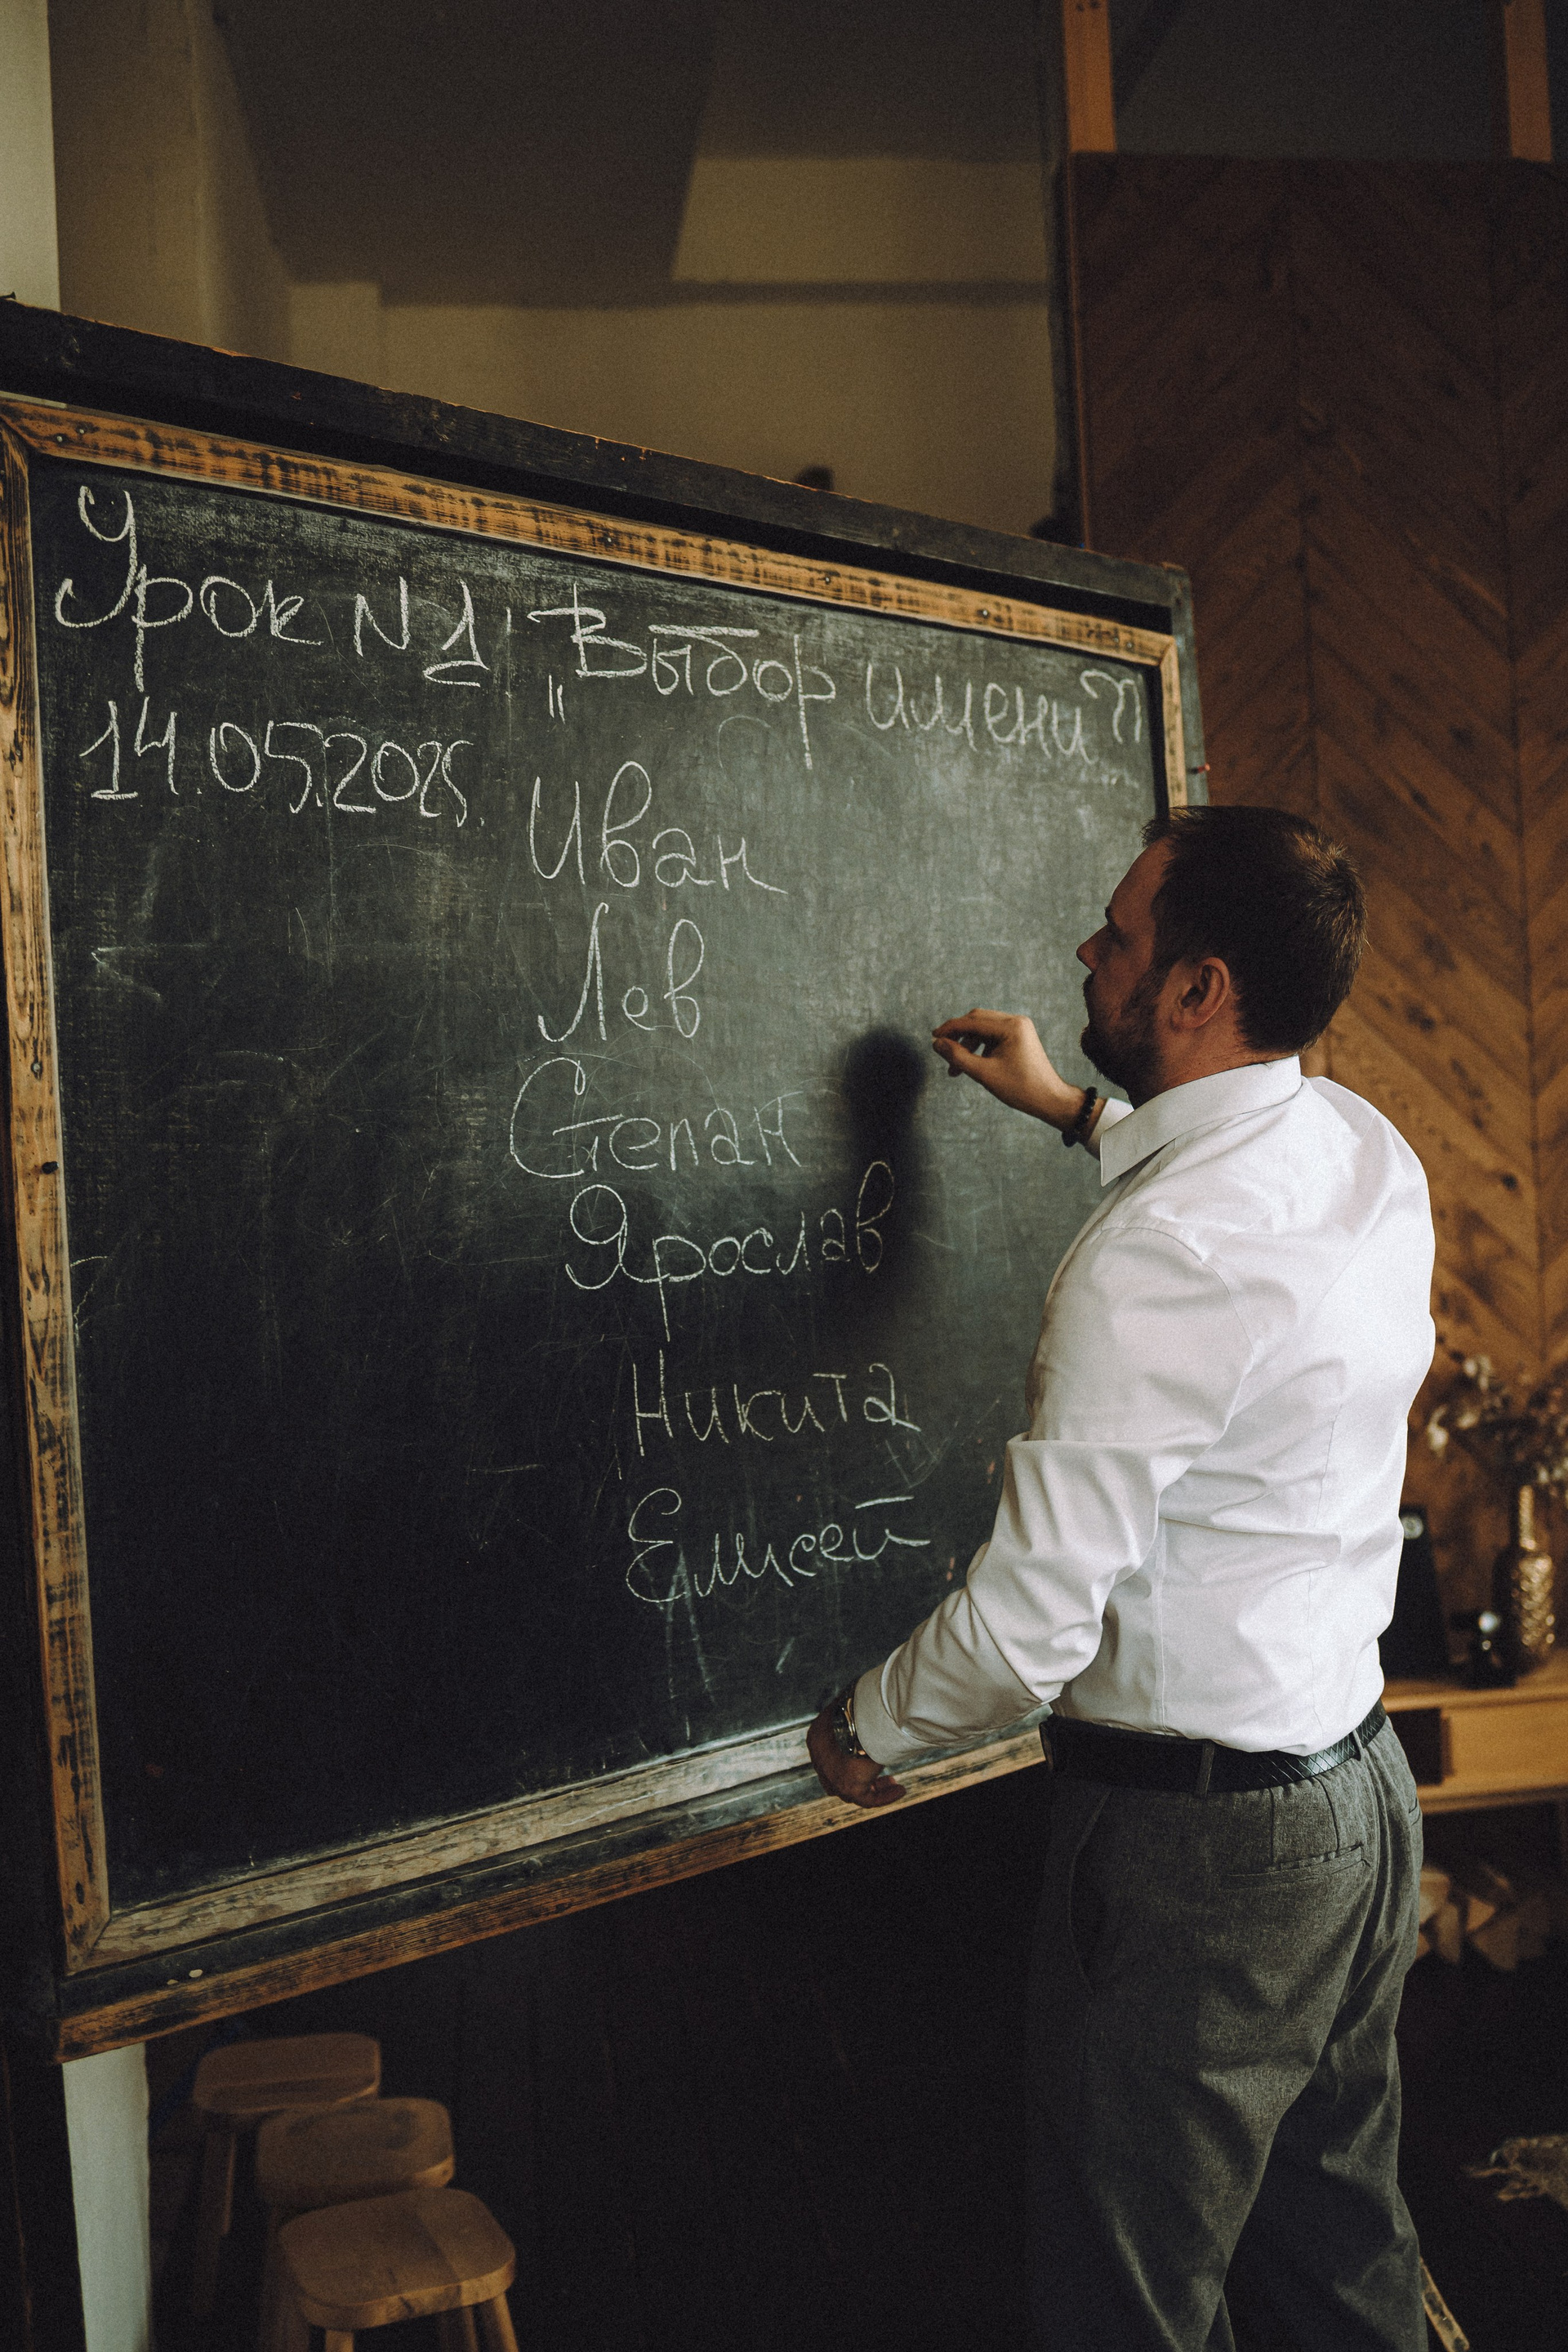 Урок N1 „Выбор имени”
14.05.2025.
Иван
Лев
Степан
Ярослав
Никита
Елисей